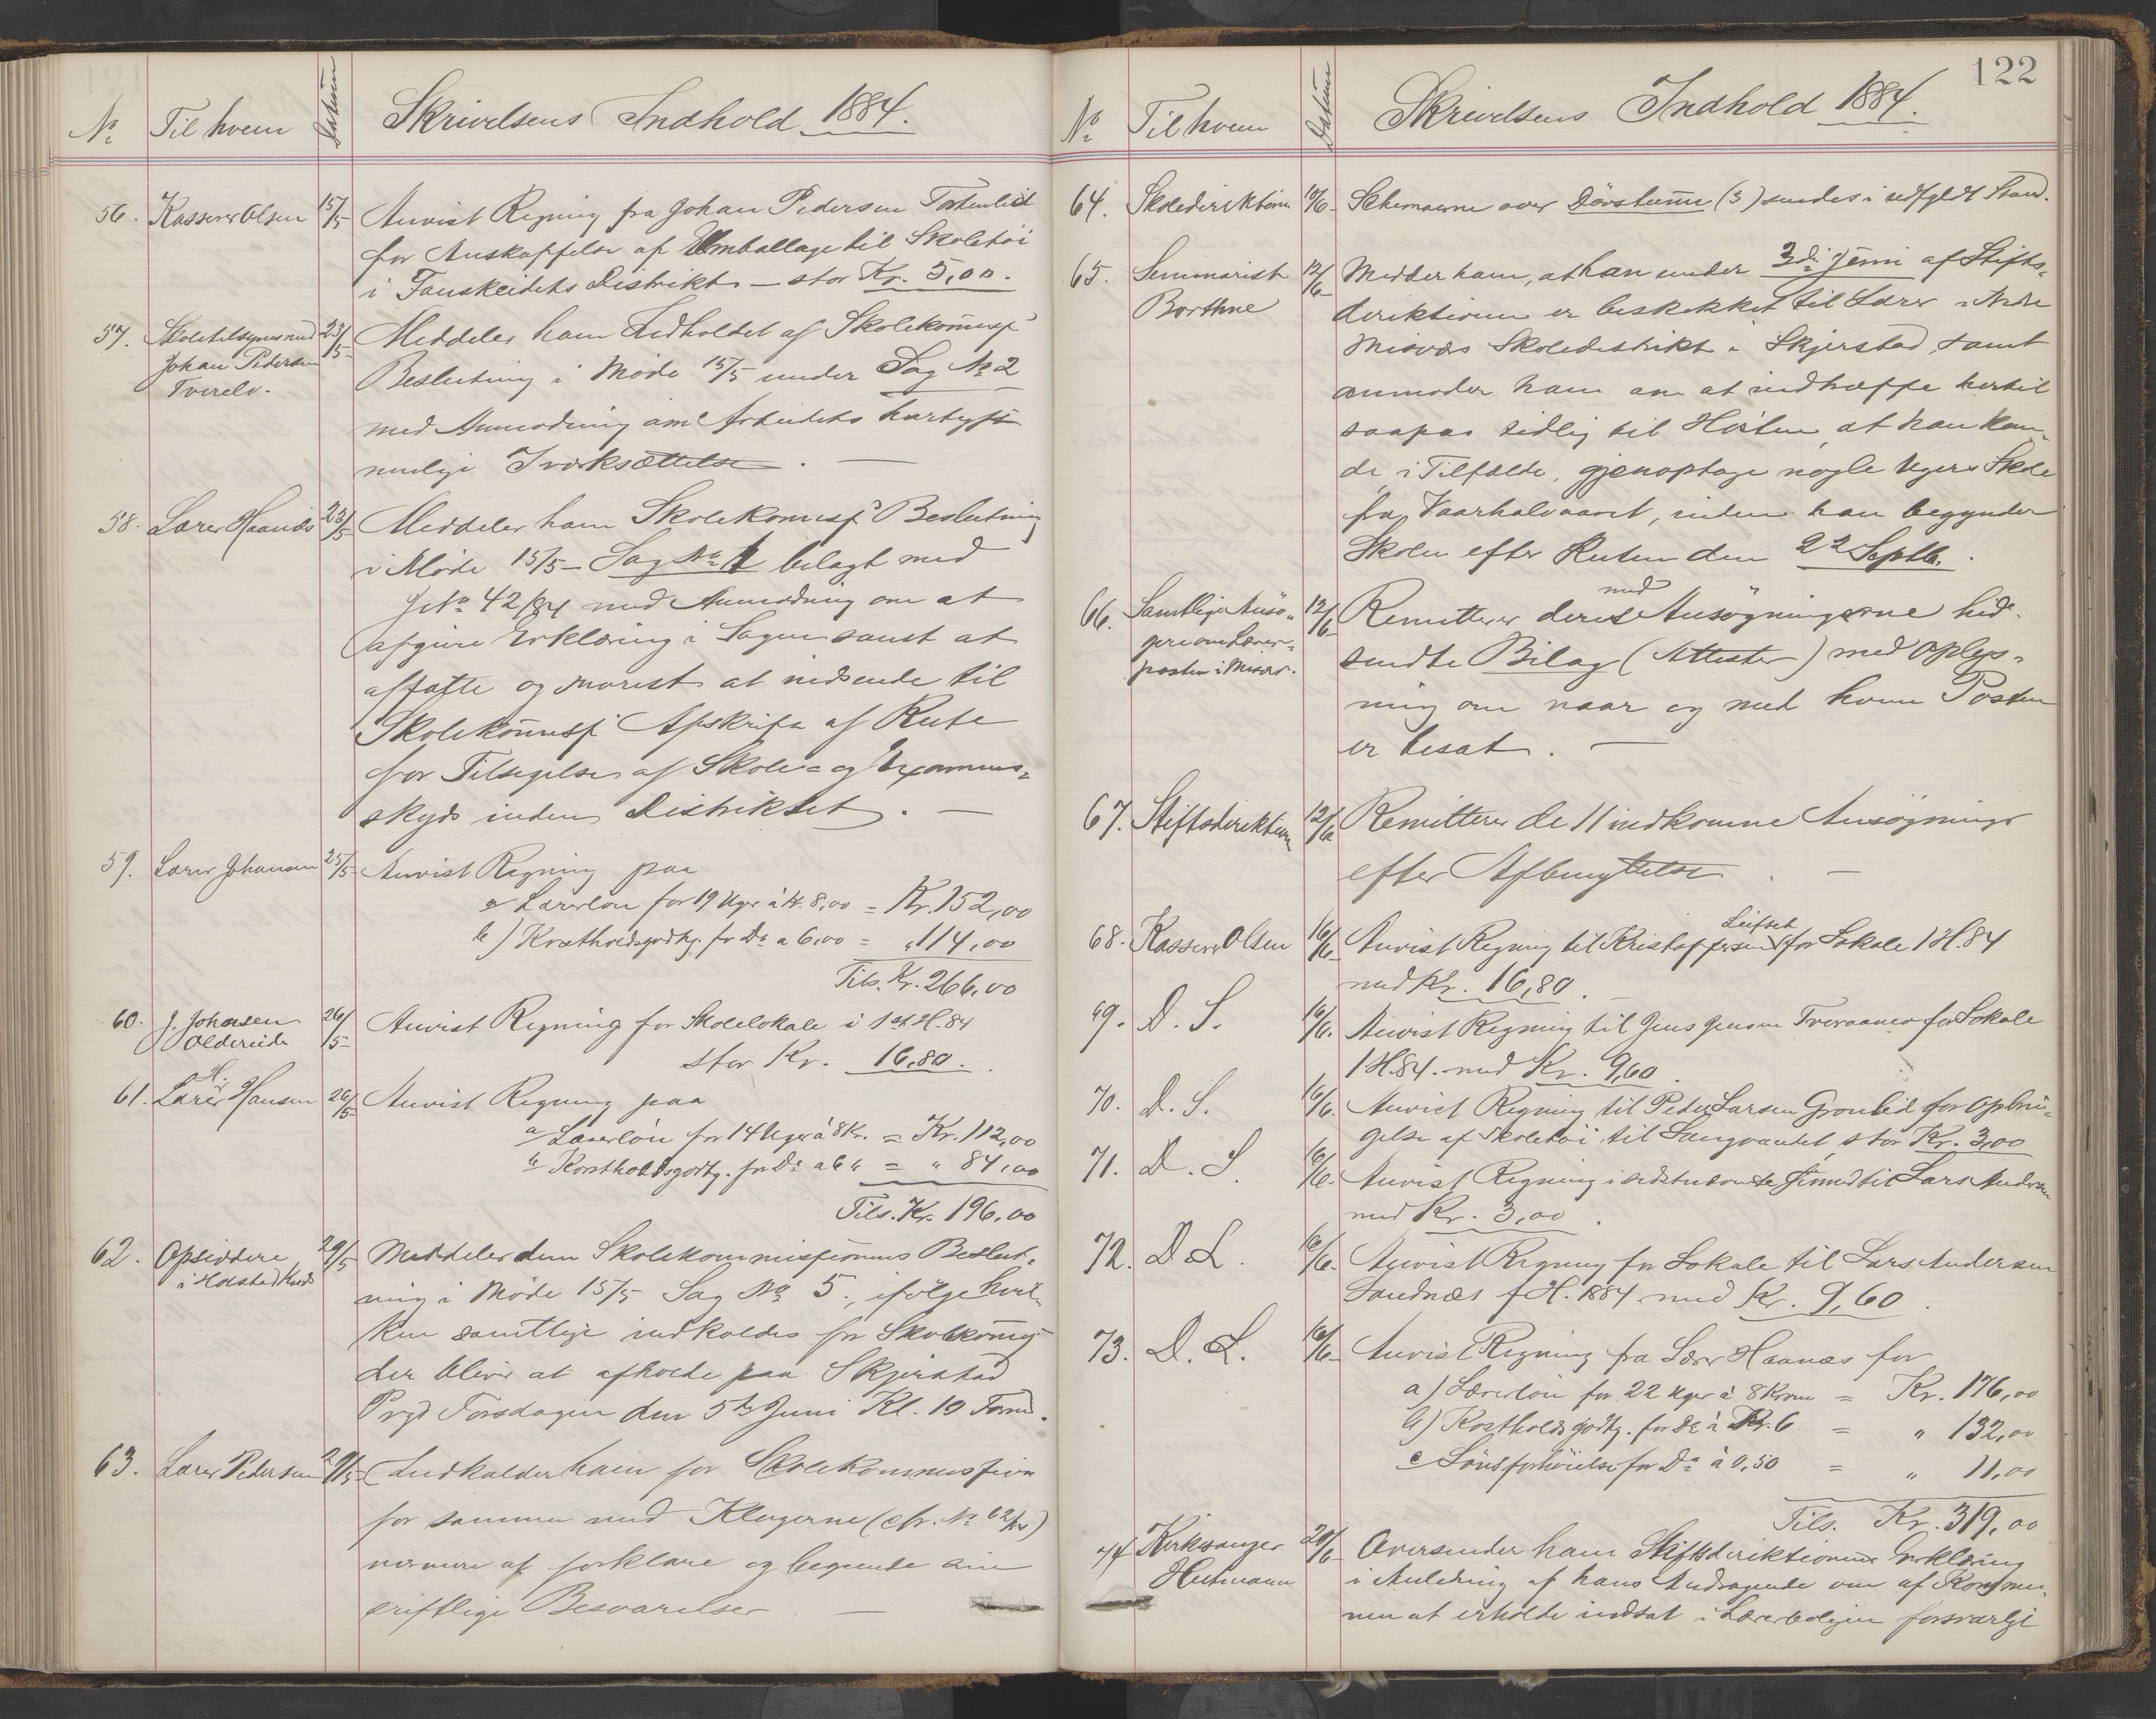 No Til hvem Datum Skrivelsens Indhold 1884.
56. Kasserer Olsen 15/5 Anvist Regning fra Johan Pedersen Tortenlid
for Anskaffelse af Emballage til Skoletöi
i Fauskeidets Distrikt – stor Kr. 5,00.
57. Skoletilsynsmed 23/5 Meddeler ham Indholdet af Skolekommisf
Johan Pedersen
Tverelv.
Beslutning i Møde 15/5 under Sag No 2
med Anmodning om Arbeidets hurtigst
mulige Iværksættelse. —
58. Lærer Haanæs 23/5 Meddeler ham Skolekommisf Beslutning
i Møde 15/5 – Sag No 1 bilagt med
JNo 42/84 med Anmodning om at
afgive Erklæring i Sagen samt at
affatte og snarest at nedsende til
Skolekommisf Afskrift af Rute
for Tilsigelse af Skole- og Examens-
skyds inden Distriktet. —
59. Lærer Johansen 25/5 Anvist Regning paa
a) Lærerløn for 19 Uger à Kr. 8,00 = Kr. 152,00
b) Kostholdsgodtg. for Do a 6,00 = „ 114,00
Tils. Kr. 266,00
60. J. Johnsen 26/5 Anvist Regning for Skolelokale i 1st H. 84
Oldereide
stor Kr. 16,80.
61. Lærer H. Hansen 26/5 Anvist Regning paa
a) Lærerlön for 14 Uger à 8 Kr. = Kr. 112,00
b) Kostholdsgodtg. for Do a 6 „ = „ 84,00
Tils. Kr. 196,00
62. Opsiddere 29/5 Meddeler dem Skolekommissionens Beslut-
i Holstad Kreds
ning i Møde 15/5 Sag No 5., ifölge hvil-
ken samtlige indkaldes for Skolekommisf
der bliver at afholde paa Skjerstad
Prgd Torsdagen den 5te Juni Kl. 10 Form.
63. Lærer Pedersen 29/5 Indkalder ham for Skolekommission
for sammen med Klagerne (cfr. No 62/84)
nærmere at forklare og begrunde sin
skriftlige Besvarelse —
122
No Til hvem Datum Skrivelsens Indhold 1884.
64. Skoledirektionen 10/6 Schemaerne over Døvstumme (3) sendes i udfyldt Stand.
65. Seminarist 12/6 Medder ham, at han under 3die Juni af Stifts-
Borthne
direktionen er beskikket til Lærer i Nedre
Misvær Skoledistrikt i Skjerstad, samt
anmoder ham om at indtræffe hertil
saapas tidlig til Hösten, at han kun-
de, i Tilfælde, gjenoptage nogle Ugers Skole
fra Vaarhalvaaret, inden han begynder
Skolen efter Ruten den 22 Septb.
66. Samtlige Ansö- 12/6 Remitterer deres med Ansögningerne hid-
gere om Lærer-
posten i Misvær.
sendte Bilag (Attester) med Oplys-
ning om naar og med hvem Posten
er besat. —
67. Stiftsdirektionen 12/6 Remitterer de 11 indkomne Ansögninger
efter Afbenyttelse. —
68. Kasserer Olsen 16/6 Anvist Regning til Kristoffersen Leifset for Lokale 1 H. 84
med Kr. 16,80.
69. D. S. 16/6. Anvist Regning til Jens Jensen Tveraamo for Lokale
1 H. 84. med Kr. 9,60.
70. D. S. 16/6. Anvist Regning til Peder Larsen Gronlid for Opbrin-
gelse af Skoletöi til Langvandet, stor Kr. 3,00
71. D. S. 16/6. Anvist Regning i sidstnævnte Øiemed til Lars Andersen
med Kr. 3,00.
72. D. L. 16/6. Anvist Regning for Lokale til Lars Andersen
Sandnæs f H. 1884 med Kr. 9,60.
73. D. L. 16/6 Anvist Regning fra Lærer Haanæs for
a) Lærerlön for 22 Uger à 8 Kroner = Kr. 176,00
b) Kostholdsgodtg. for Do à Kr. 6 = „ 132,00
c Lönsforhöielse for Do à 0,50 = „ 11,00
Tils. Kr. 319,00
74 Kirkesanger 20/6 Oversender ham Stiftsdirektionens Erklæring
Heitmann
i Anledning af hans Andragende om af Kommu-
nen at erholde indsat i Lærerboligen forsvarlige